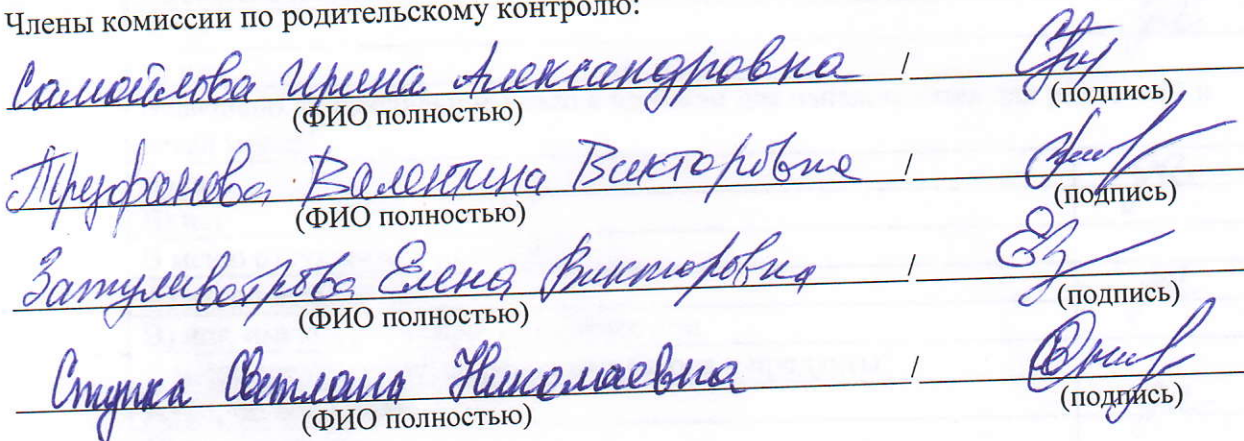 Члены комиссии по родительскому контролю:
Самойлова Ирина Александровна /
(ФИО полностью) (подпись)
Труфанова Валентина Викторовна /
(ФИО полностью) (подпись)
Затуливетрова Елена Викторовна /
(ФИО полностью) (подпись)
Ступка Светлана Николаевна /
(ФИО полностью) (подпись)